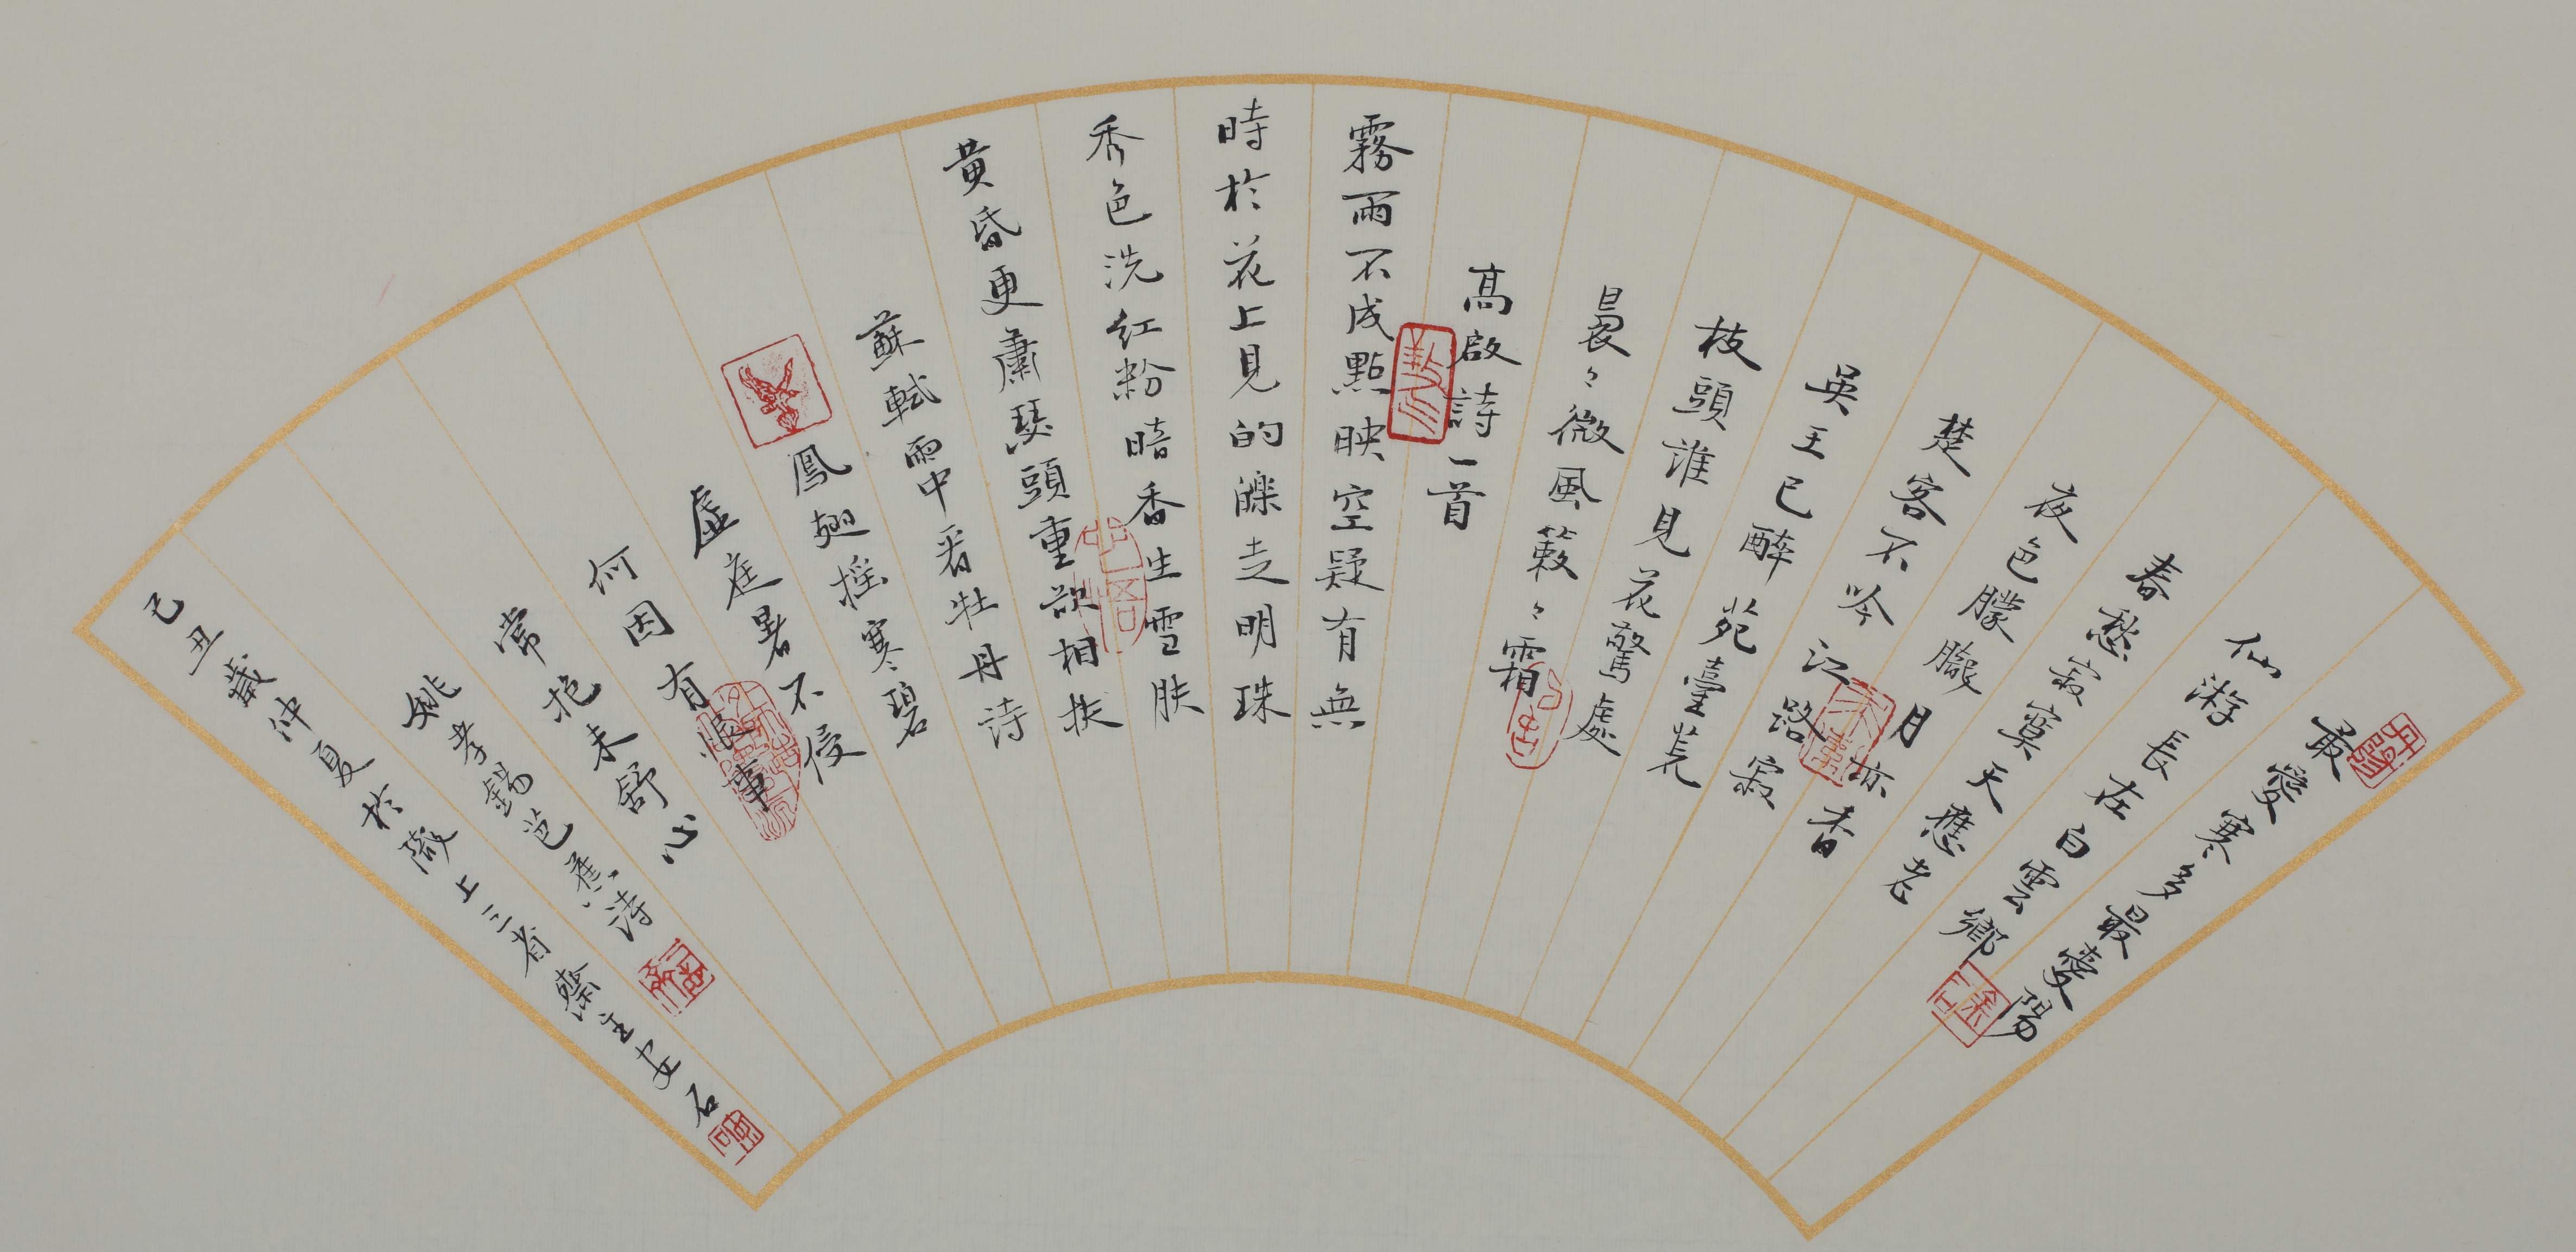 最愛寒多最愛陽
仙游長在白雲鄉
春愁寂寞天應老
夜色朦朧月亦香
楚客不吟江路寂
吳王已醉苑臺荒
枝頭誰見花驚處
裊々微風簌々霜
高啟詩一首
霧雨不成點映空疑有無
時於花上見的皪走明珠
秀色洗紅粉暗香生雪肤
黃昏更蕭瑟頭重欲相扶
蘇軾雨中看牡丹詩
鳳翅搖寒碧
虛庭暑不侵
何因有恨事
常抱未舒心
姚孝錫芭蕉詩
己丑歲仲夏於上三省齋主安石